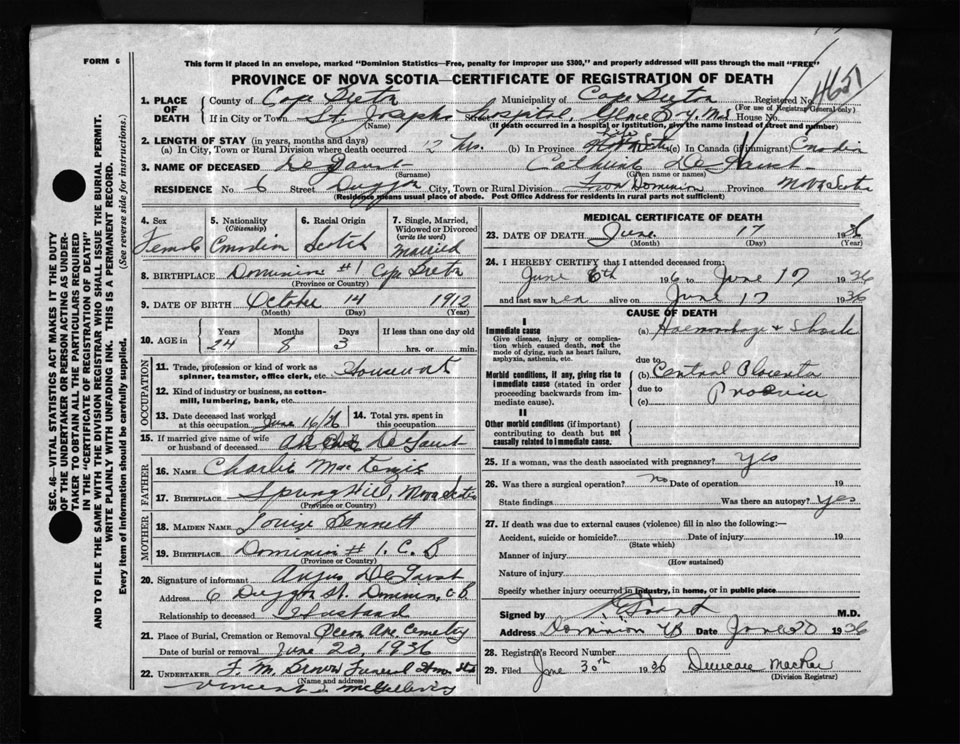 FORM 6
This form if placed in an envelope, marked "Dominion Statistics—Free, penalty for improper use $300," and properly addressed will pass through the mail "FREE"
PROVINCE OF NOVA SCOTIA—CERTIFICATE OF REGISTRATION OF DEATH
1. PLACE OF DEATH County of Cape Breton Municipality of Cape Breton Registered No.
(For use of Registrar General only)
If in City or Town St. Josephs Hospital, Glace Bay House No.
(Name) (If death occurred in a hospital or institution, give the name instead of street and number)
2. LENGTH OF STAY (in years, months and days)
(a) In City, Town or Rural Division where death occurred 12 hrs. (b) In Province (c) In Canada (if immigrant)
3. NAME OF DECEASED
(Surname) (Given name or names)
RESIDENCE No. 6 Street Duggan City, Town or Rural Division Dominion Province Nova Scotia
(Residence means usual place of abode. Post Office Address for residents in rural parts not sufficient)
4. Sex 5. Nationality 6. Racial Origin 7. Single, Married, Widowed or Divorced
(Citizenship) (write the word)
Female Canadian Scotch Married
8. BIRTHPLACE Dominion #1 Cape Breton
(Province or Country)
9. DATE OF BIRTH October 14 1912
(Month) (Day) (Year)
10. AGE in Years Months Days If less than one day old
24 8 3 hrs. or min.
OCCUPATION
11. Trade, profession or kind of work as spinner, teamster, office clerk, etc.
12. Kind of industry or business, as cotton-mill, lumbering, bank, etc.
13. Date deceased last worked at this occupation June 16/36 14. Total yrs. spent in this occupation
15. If married give name of wife or husband of deceased
FATHER
16. NAME Charlie MacKenzie
17. BIRTHPLACE Spring Hill, Nova Scotia
(Province or Country)
MOTHER
18. MAIDEN NAME Louise Bennett
19. BIRTHPLACE Dominion #1. C.B
(Province or Country)
20. Signature of informant Angus
Address 6 Duggan St. Dominion, C.B.
Relationship to deceased Husband
21. Place of Burial, Cremation or Removal Ocean Ave. Cemetery
Date of burial or removal June 20, 1936
22. UNDERTAKER F. M. Brown Funeral
(Name and address)
Vincent J.
MEDICAL CERTIFICATE OF DEATH
23. DATE OF DEATH June 17 1936
(Month) (Day) (Year)
24. I HEREBY CERTIFY that I attended deceased from:
June 6th 1936 to June 17 1936
and last saw h er alive on June 17 1936
CAUSE OF DEATH
I
Immediate cause (a) Haemorrhage & Shock
Give disease, injury or complication which caused death, not the mode of dying, such as heart failure, asphyxia, asthenia, etc.
due to
Morbid conditions, if any, giving rise to immediate cause (stated in order proceeding backwards from immediate cause). (b) Central Placenta
due to
(c) Praevia
II
Other morbid conditions (if important) contributing to death but not causally related to immediate cause.
25. If a woman, was the death associated with pregnancy? yes
26. Was there a surgical operation? no Date of operation 19
State findings Was there an autopsy? yes
27. If death was due to external causes (violence) fill in also the following:—
Accident, suicide or homicide? Date of injury 19
(State which)
Manner of injury
(How sustained)
Nature of injury
Specify whether injury occurred in industry, in home, or in public place
Signed by M.D.
Address Dominion CB Date June 20 1936
28. Registrar's Record Number
29. Filed June 30th 1936 Duncan MacRae
(Division Registrar)
SEC. 46—VITAL STATISTICS ACT MAKES IT THE DUTY
OF THE UNDERTAKER OR PERSON ACTING AS UNDER-
TAKER TO OBTAIN ALL THE PARTICULARS REQUIRED
IN THE "CERTIFICATE OF REGISTRATION OF DEATH"
AND TO FILE THE SAME WITH THE DIVISION REGISTRAR WHO SHALL ISSUE THE BURIAL PERMIT.
WRITE PLAINLY WITH UNFADING INK. THIS IS A PERMANENT RECORD.
Every item of information should be carefully supplied. (See reverse side for instructions.)